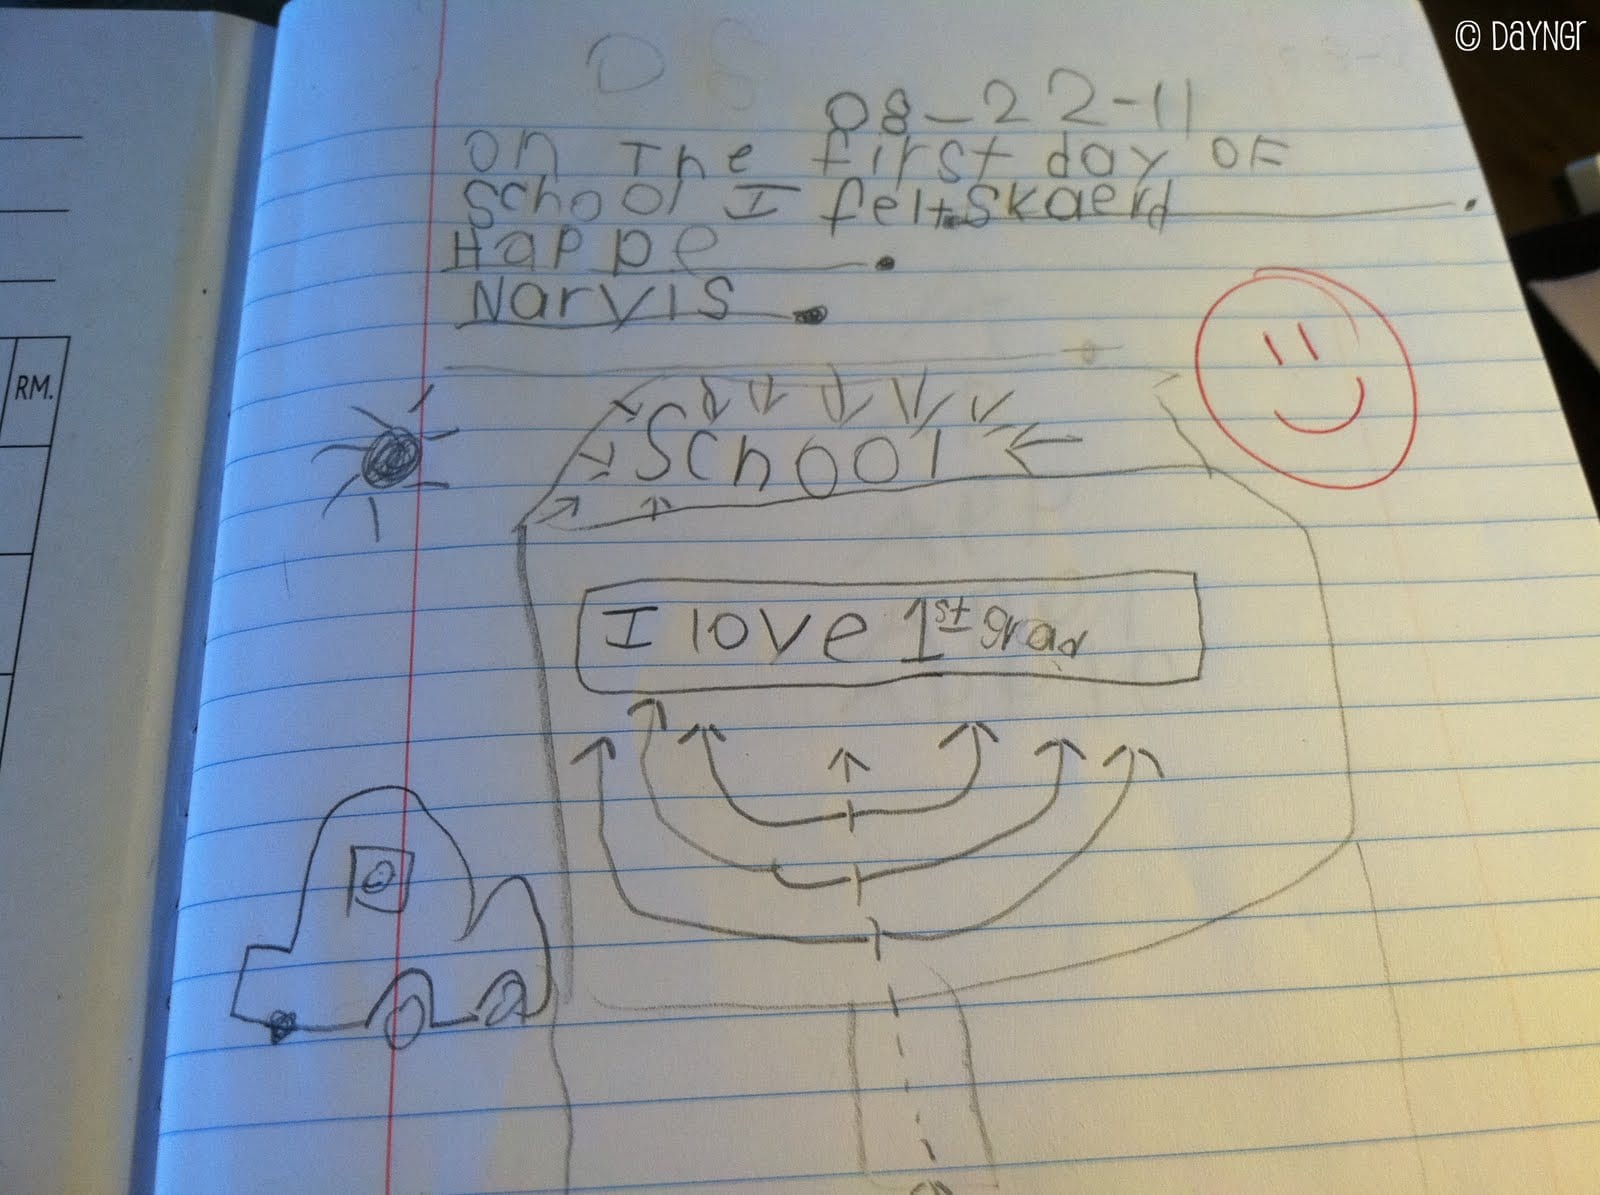 © DAYNGR
08-22-11
on The first day of
School I felt Skaerd .
Happe .
Narvis .
RM.
School
I love 1st grad